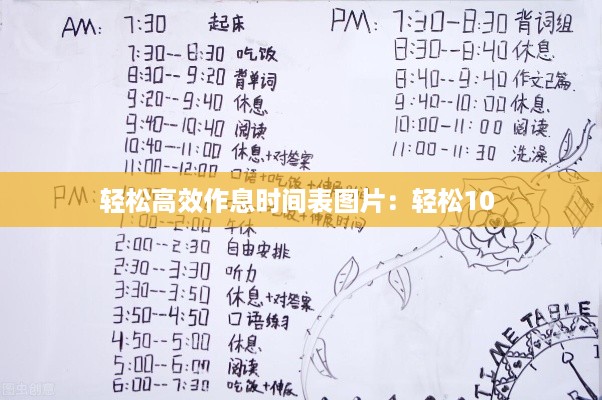 AM: 7:30 起床
7:30--8:30 吃饭
8:30--9:20 背单词
9:20--9:40 休息
9:40--10:40 阅读
10:40--11:00 休息+对答案
11:00--12:00 口语
PM:
轻松高效作息时间表图片：轻松10
2:00 午休
2:00--2:30 自由安排
2:30--3:30 听力
3:30--3:50 休息+对答案
3:50--4:50 口语练习
4:50--5:00 休息
5:00--6:00 阅读
6:00--7:30 吃饭+伸展
PM: 7:30--8:30 背词组
8:30--8:40 休息
8:40--9:40 作文2篇
9:40--10:00 休息
10:00-11:00 阅读
11:00--11:30 洗澡
TIME TABLE
图虫创意